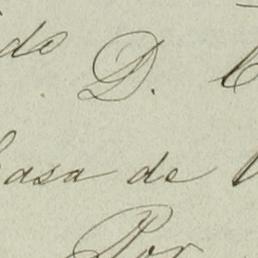 do D.
Casa de
Por